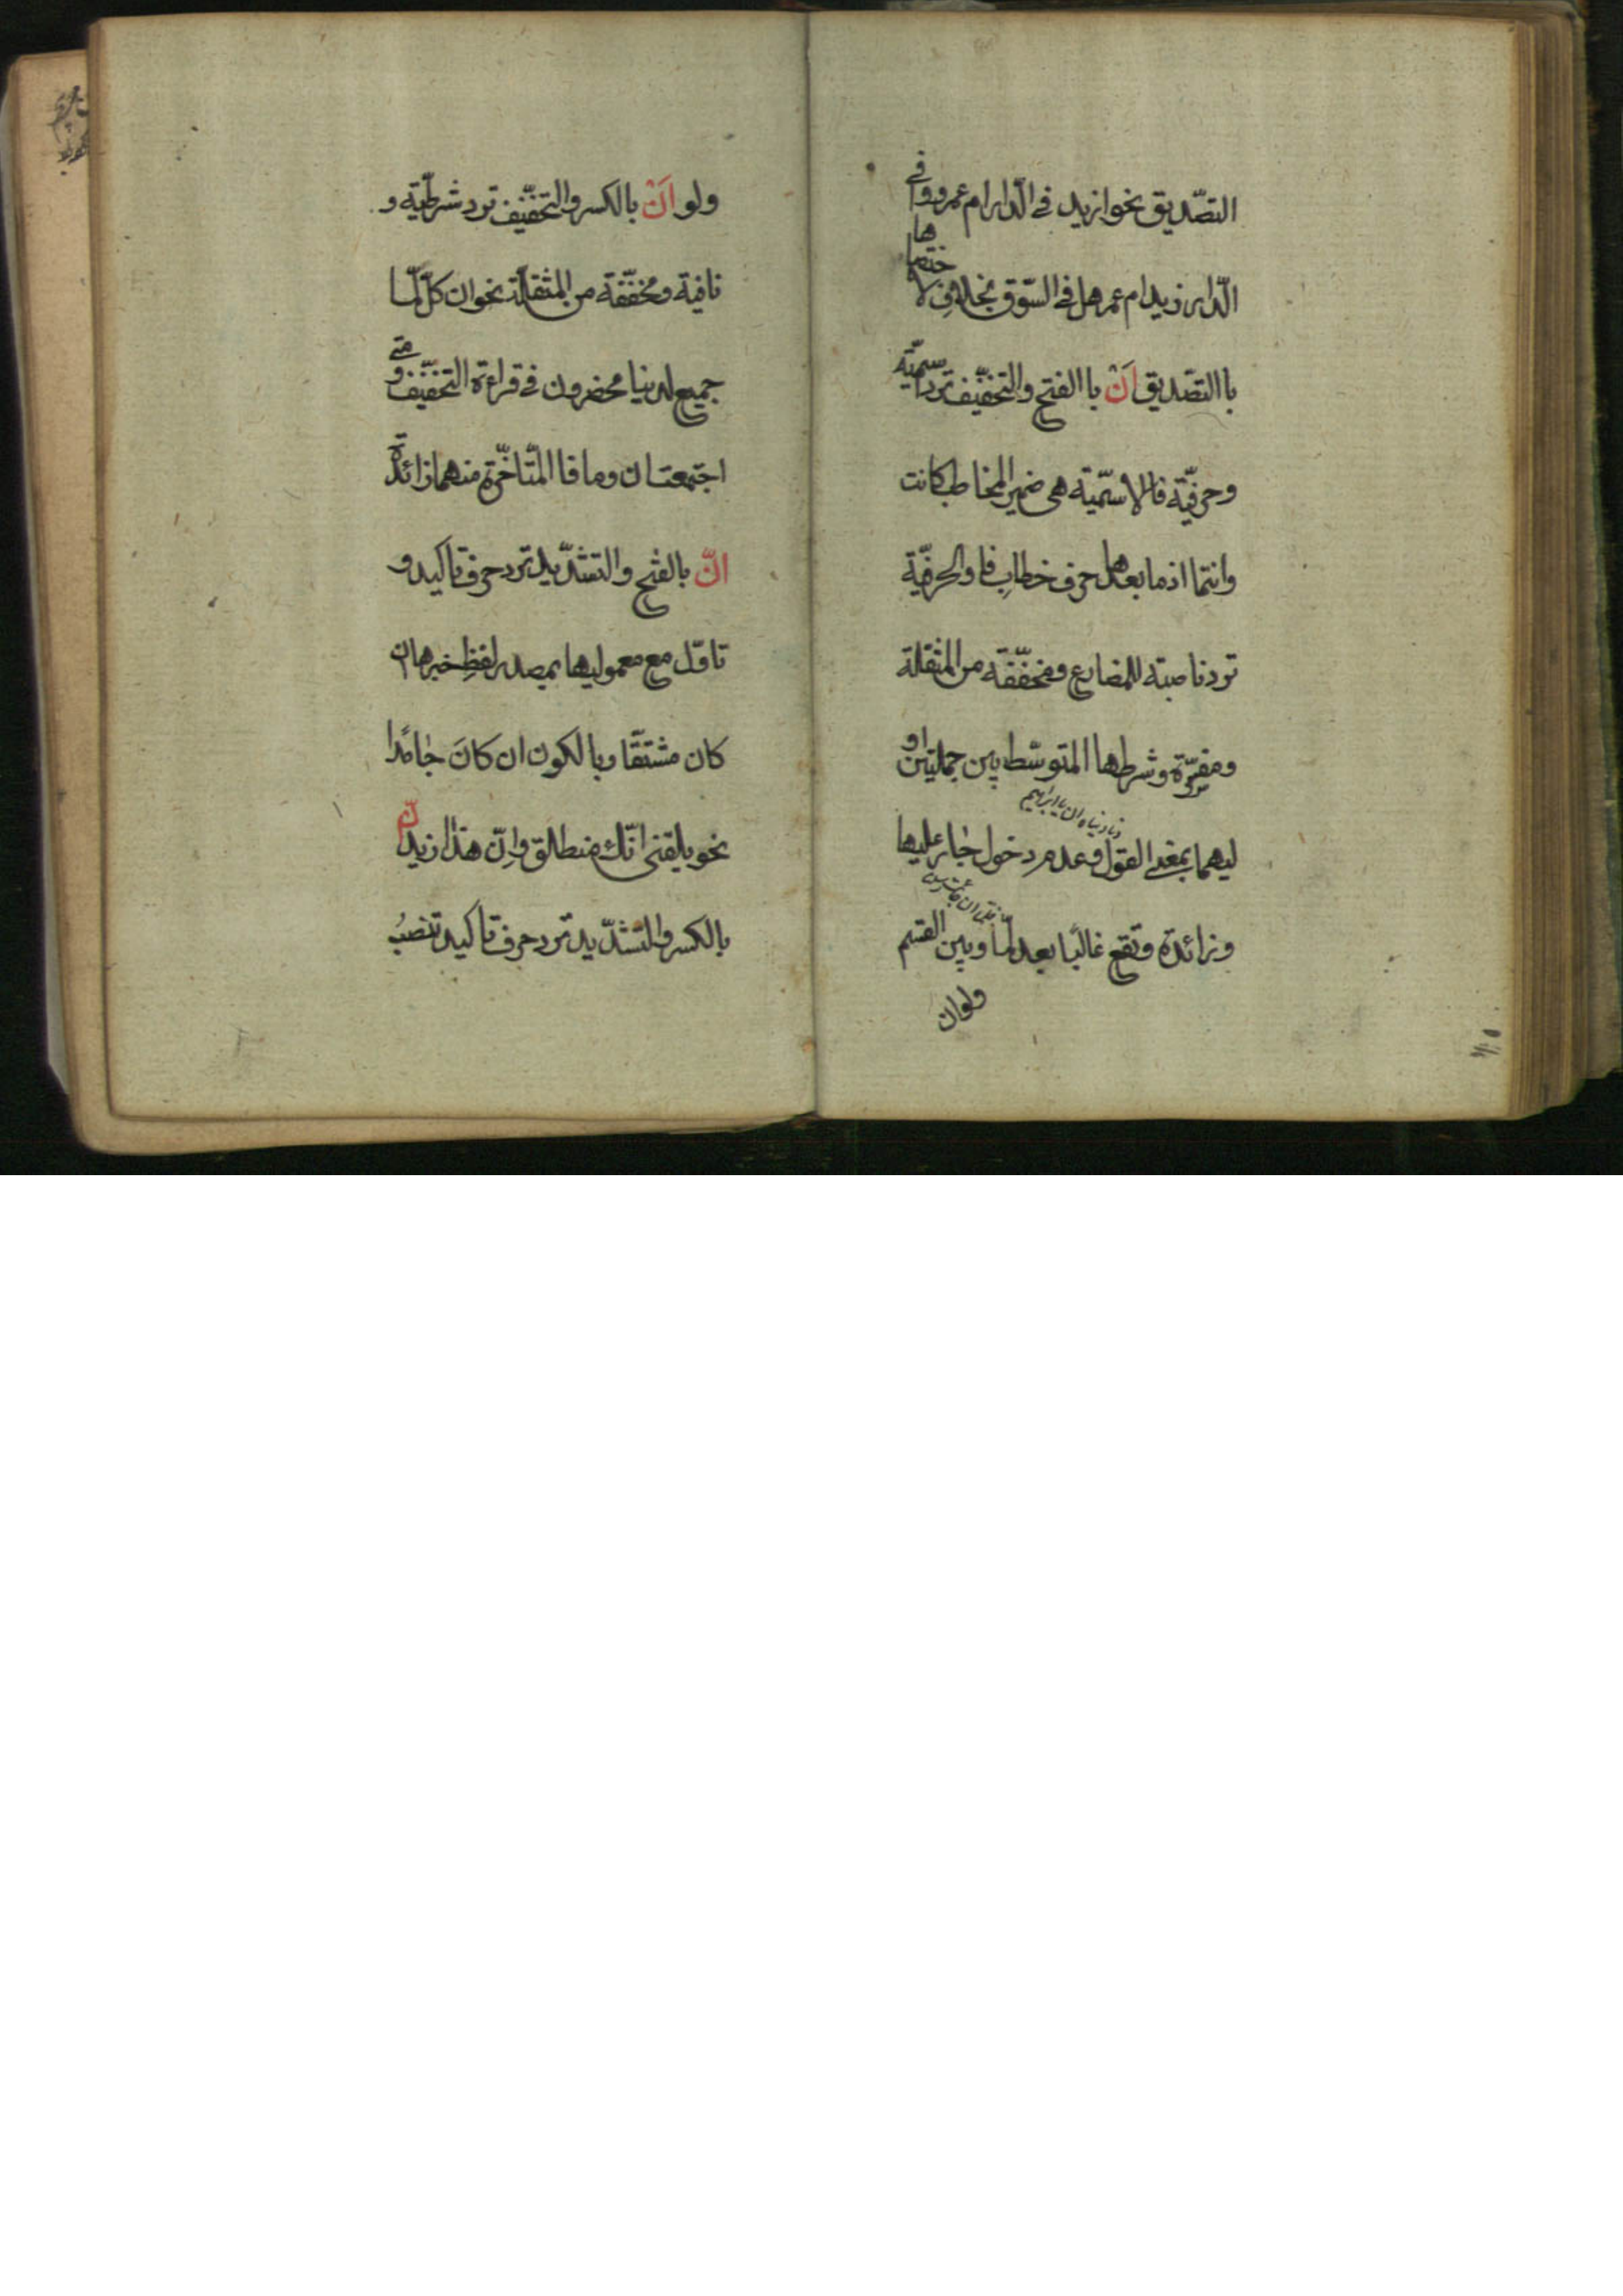 التصّديق نحو ازيد فى الدّار ام عمرو وا فى
الدّار زيد ام عمر هل فى السّوق بخلاف لاختصاصها
باالتصّديق اَنْ باالفتح والتخفّيف ترد اسميّة
وحرفيّة فالاسميّة هى ضمير المخاطب كانت
وانتما اذ ما بعدها حرف خطابٍ فا والحرفيّة
ترد ناصبته للمضارع ومخفّفة من المثقلة
ومفسّرة وشرطها المتوسّط بين جملتين او
ونادنياه ان يا ابراهيم
ليهما بمعنى القول وعدم دخول جار عليها
فلمّا ان جاء البشير
وزائدة وتقع غالبًا بعد لمّا وبين القسم
ولو ان
ولو اَنْ بالكسر والتخفّيف ترد شرطيّة و
نافية ومخفّفة من المثقلّة نحو ان كلّ لمّا
جميع لدينا محضرون فى قراءة التخفّيف و متى
اجتمعتان وما فا المّتاخّرة منهما زائدة
انّ بالفتح والتشدّيد ترد حرف تاكيد و
تاوّل مع معموليها بمصدر لفظِ خبرها ان
كان مشتقّا وبالكون ان كانَ جامدًا
نحو بلغنى انّك منطلق وانّ هذا زيد انّ
بالكسر والتشدّيد ترد حرف تاكيد تنصبُ